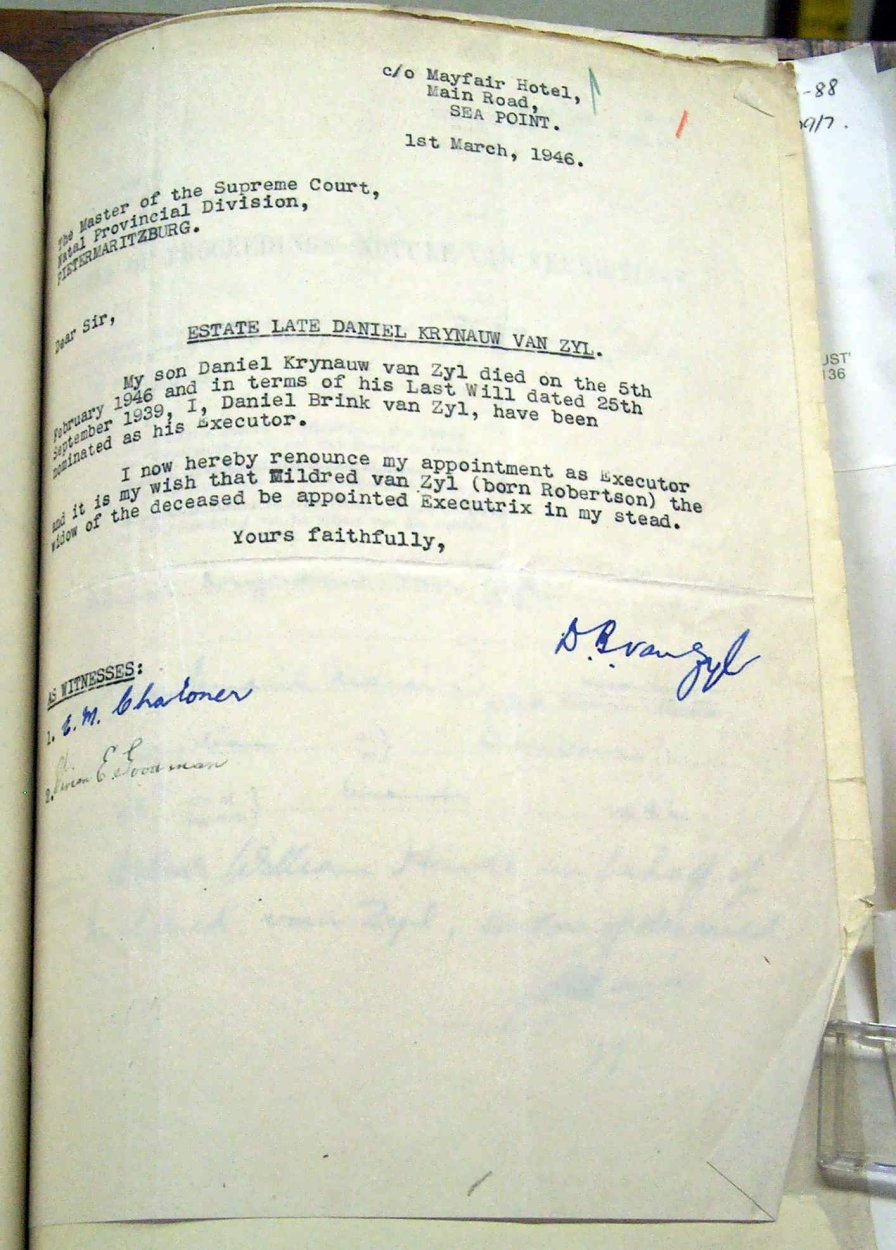 c/o Mayfair Hotel,
Main Road,
SEA POINT.
1st March, 1946.
-88
The Master of the Supreme Court,
Natal Provincial Division,
PIETERMARITZBURG.
Dear Sir,
ESTATE LATE DANIEL KRYNAUW VAN ZYL.
My son Daniel Krynauw van Zyl died on the 5th
February 1946 and in terms of his Last Will dated 25th
September 1939, I, Daniel Brink van Zyl, have been
nominated as his Executor.
I now hereby renounce my appointment as Executor
and it is my wish that Mildred van Zyl (born Robertson) the
widow of the deceased be appointed Executrix in my stead.
Yours faithfully,
D.B. van Zyl
AS WITNESSES:
1. C. M. Chaloner
2. E Goodman